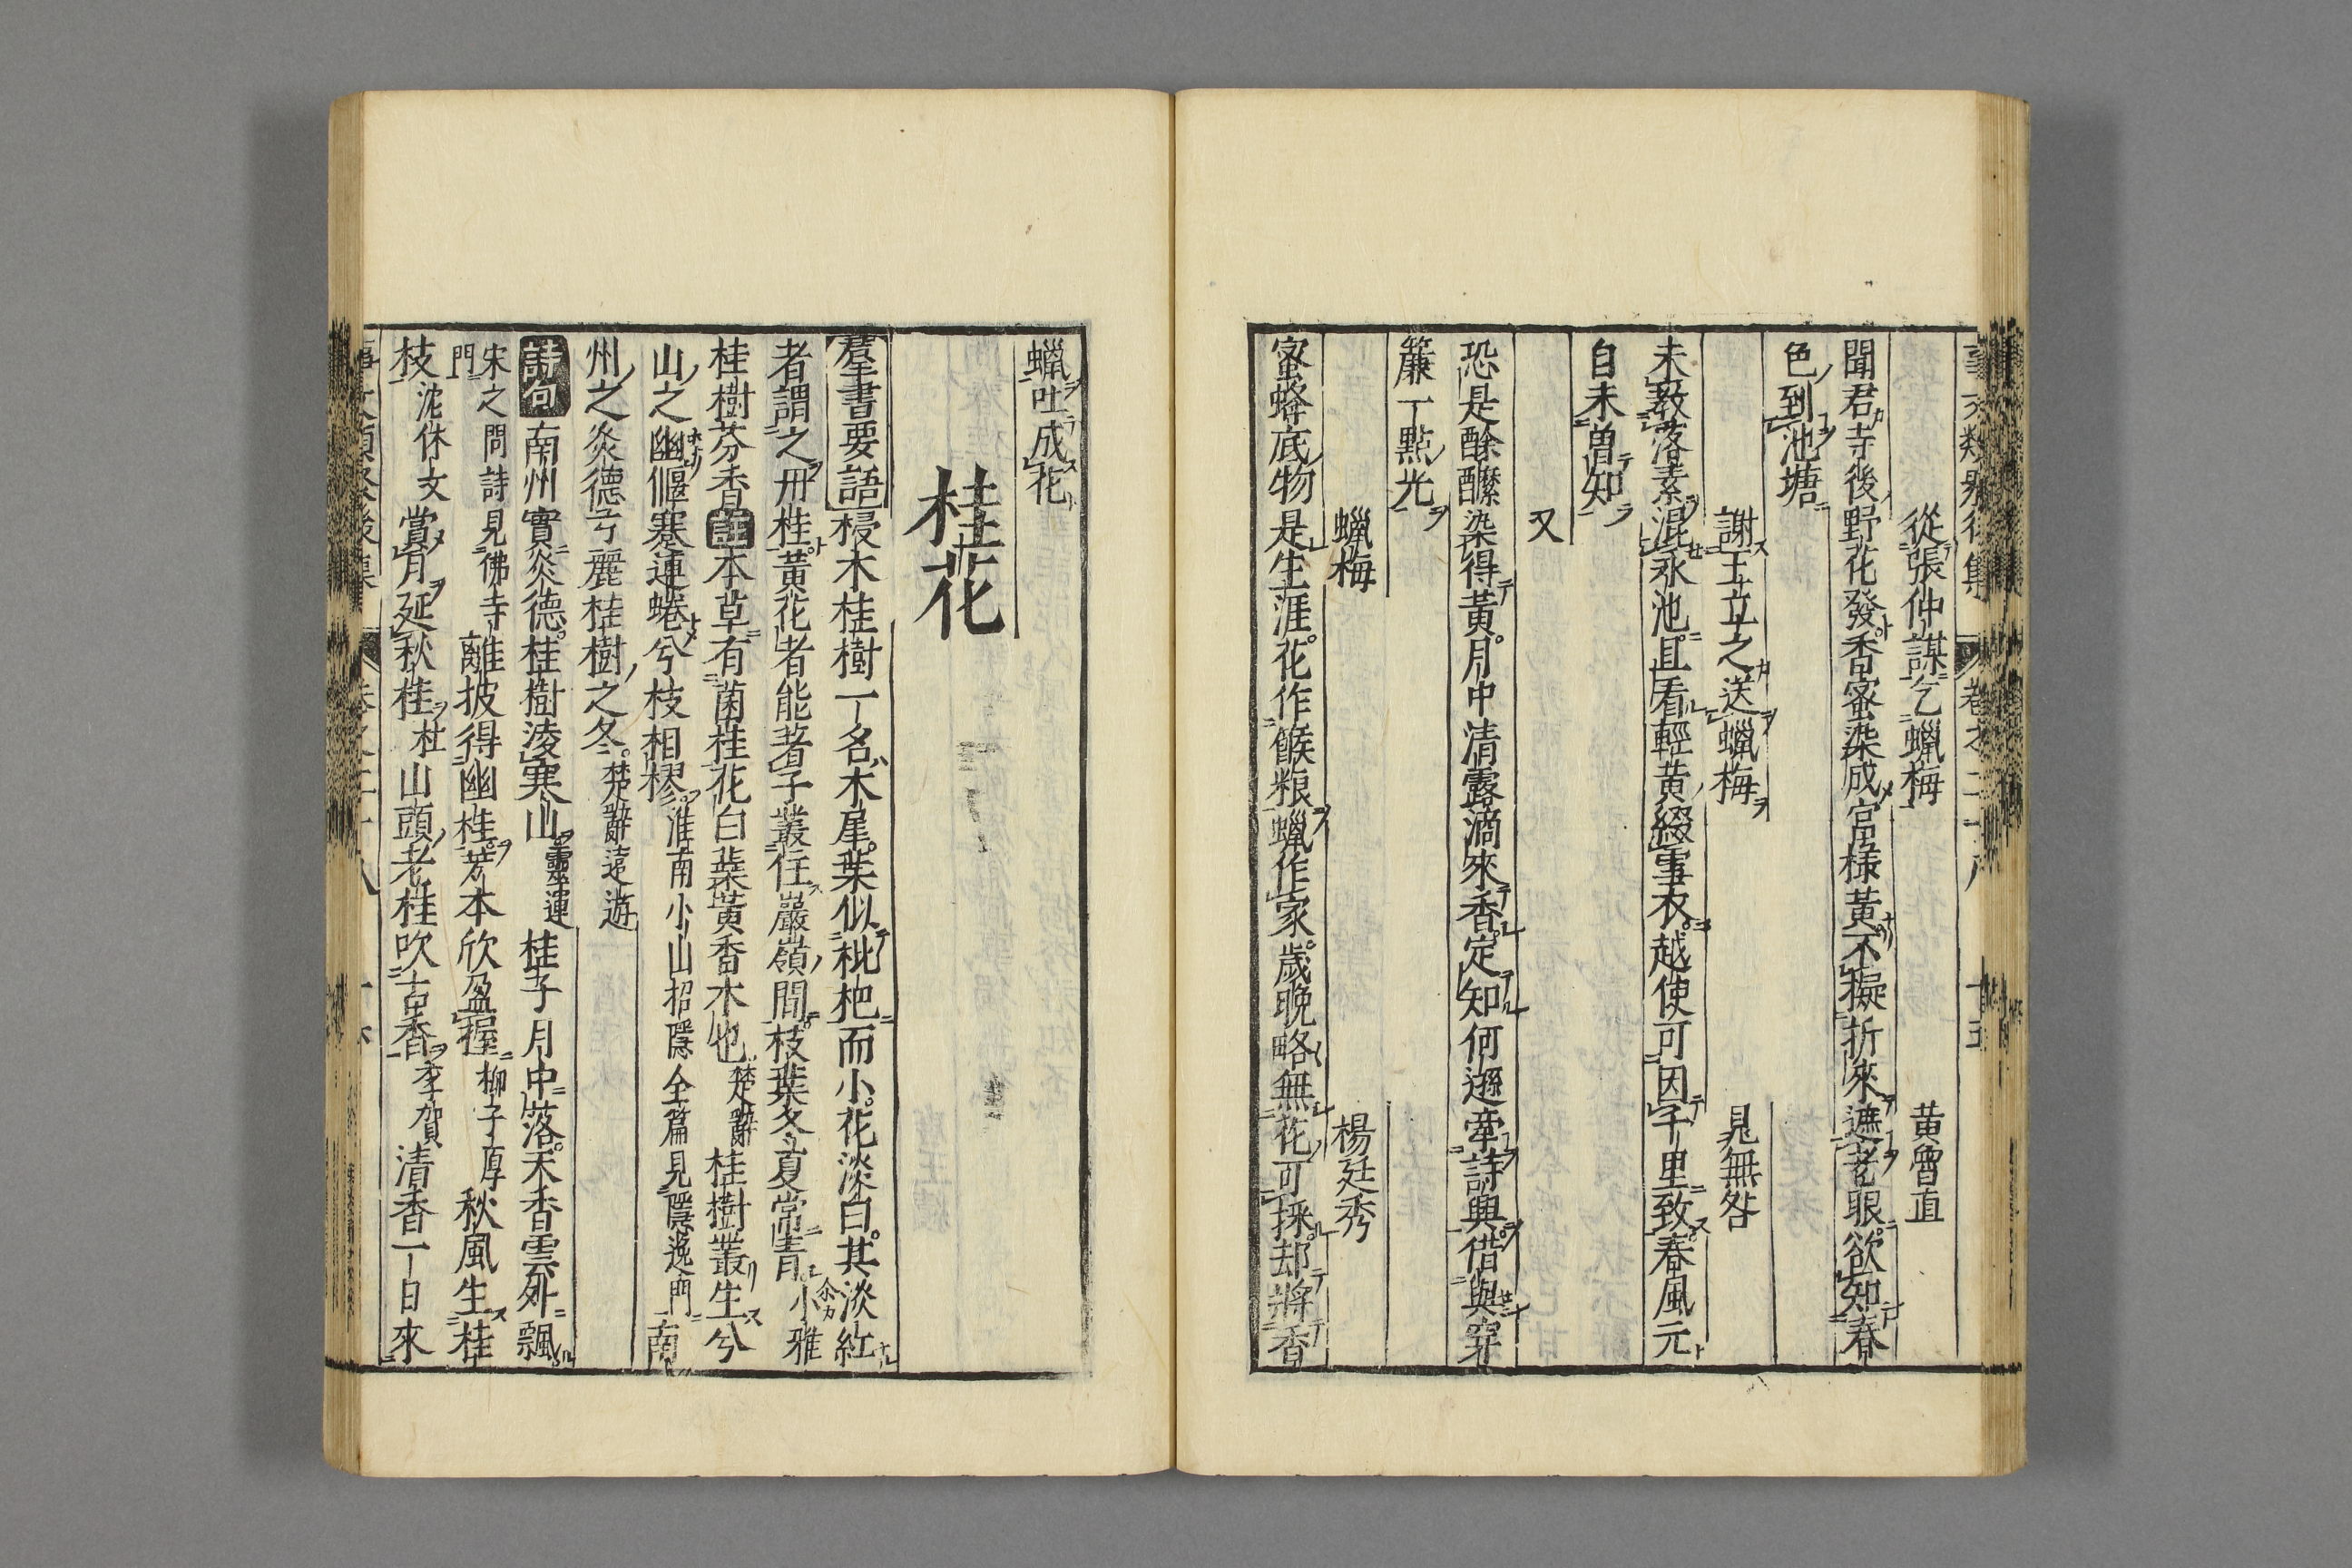 從張仲謀乞蠟梅 黄魯直
聞君寺後野花發香蜜染成宮様黄不擬折來遮老眼欲知春
色到池塘
謝王立之送蠟梅 晁無咎
未教落素混氷池且看輕黄綴雪衣越使可因千里致春風元
自未曽知
又
恐是酴醾染得黃月中清露滴來香定知何遜牽詩興借與穿
簾一點光
蠟梅 楊廷秀
蜜蜂底物是生涯花作餱粮蠟作家歲晚略無花可採却將香
蠟吐成花
桂花
羣書要語 梫木桂樹一名木犀葉似枇杷而小花淡白其淡紅
者謂之丹桂黃花者能著子叢生巖嶺間枝葉冬夏常青 尒雅
桂樹芬香 註 本草有菌桂花白蘂黃香木也 楚辭 桂樹叢生兮
山之幽偃蹇連蜷兮枝相樛 淮南小山招隱全篇見隱逸門 南
州之炎德兮麗桂樹之冬 楚辭遠遊
詩句 南州實炎德桂樹凌寒山 靈運 桂子月中落禾香雲外飄
宋之問詩見佛寺門 離披得幽桂芳本欣盈握 柳子厚 秋風生桂
枝 沈休文 賞月延秋桂 杜 山頭老桂吹古香 李賀 清香一日來